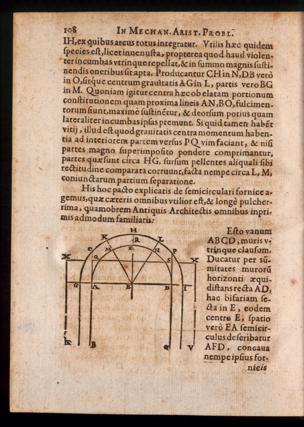 108 IN MECHAN. ARIST. PROBL.
IH, ex quibus arcus totus integratur. Vtilis hæc quidem
species est, licet inuenusta, propterea quod haud violen-
ter in cumbas vtrinque repellat, & in summo magnis susti-
nendis oneribus sit apta. Producantur CH in N, DB verò
in O, sitque centrum grauitatis AG in L, partis vero BG
in M. Quoniam igitur centra hæc ob elatam portionum
constitutionem quam proxima lineis AN, BO, fulcimen-
torum siunt, maximè sustinẽtur, & deorsum potius quam
lateraliter in cumbas ipsas premunt. Si quid tamen habẽt
vitij, illud est quod grauitatis centra momentum haben-
tia ad interiorem partem versus PQ vim faciant, & nisi
partes magno superimposito pondere comprimantur,
partes quæ sunt circa HG. sursum pellentes aliquali sibi
rectitudine comparata corruant, facta nempe circa L, M,
coniunctarum partium separatione.
His hoc pacto explicatis de semicirculari fornice a-
gemus, quæ cæteris omnibus vtilior est, & longè pulcher-
rima, quamobrem Antiquis Architectis omnibus inpri-
mis admodum familiaris.
Esto vanum
ABCD, muris v-
trinque clausum.
Ducatur per sũ-
mitates murorũ
horizonti æqui-
distans recta AD,
hæc bifariam se-
cta in E, eodem
centro E, spatio
verò EA semicir-
culus describatur
AFD, concaua
nempe ipsius for-
nicis